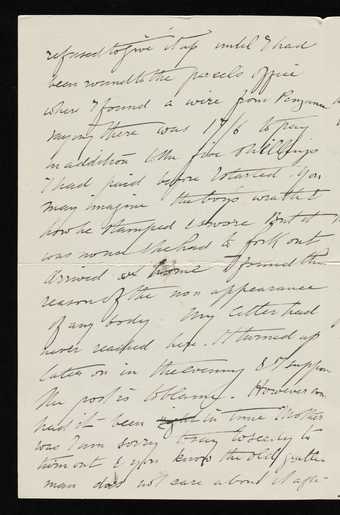 refused to give it up until I had
been round to the parcels office
where I found a wire from Penzance
saying there was 17/6 to pay
in addition to the five shillings
I had paid before I started. You
may imagine the boy's wrath &
how he stamped & swore But it
was no use he had to fork out
Arrived at home I found the
reason of the non appearance
of any body My letter had
never reached here. It turned up
later on in the evening so I suppose
the post is to blame. However
had it been in time Mother
was I am sorry to say to seedy to
turn out & you know the old gentle
man does not care about it after